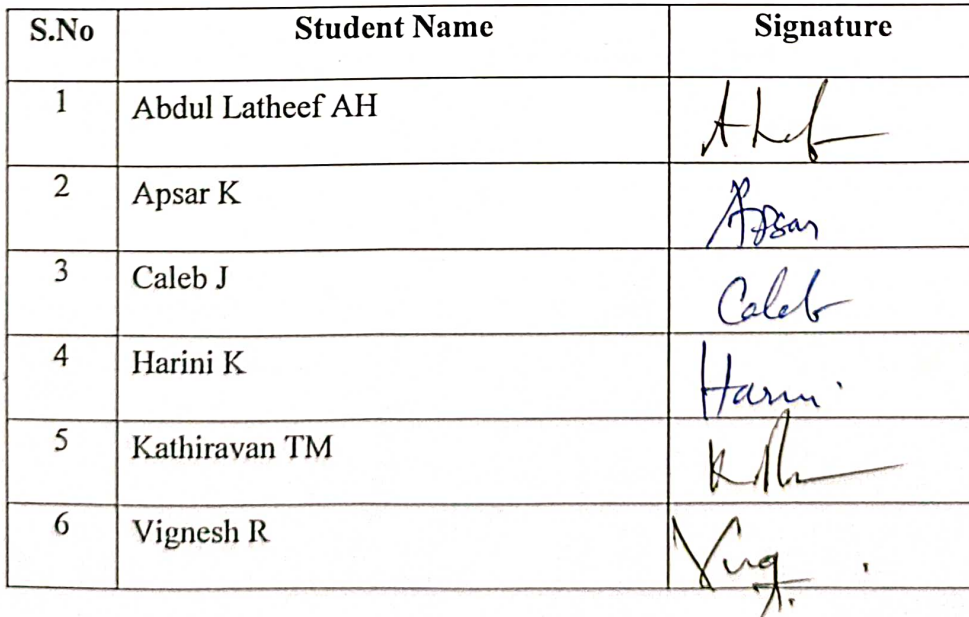 S.No Student Name Signature
1 Abdul Latheef AH
2 Apsar K Apsar
3 Caleb J Caleb
4 Harini K Harini
5 Kathiravan TM
6 Vignesh R